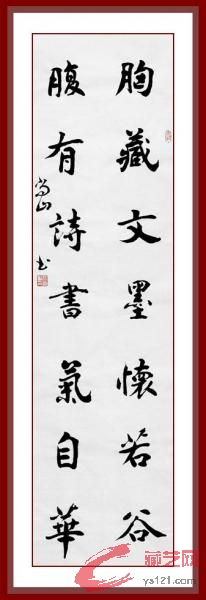 胸藏文墨懷若谷
腹有詩書氣自華
尚山书
藏艺网
ys121.com